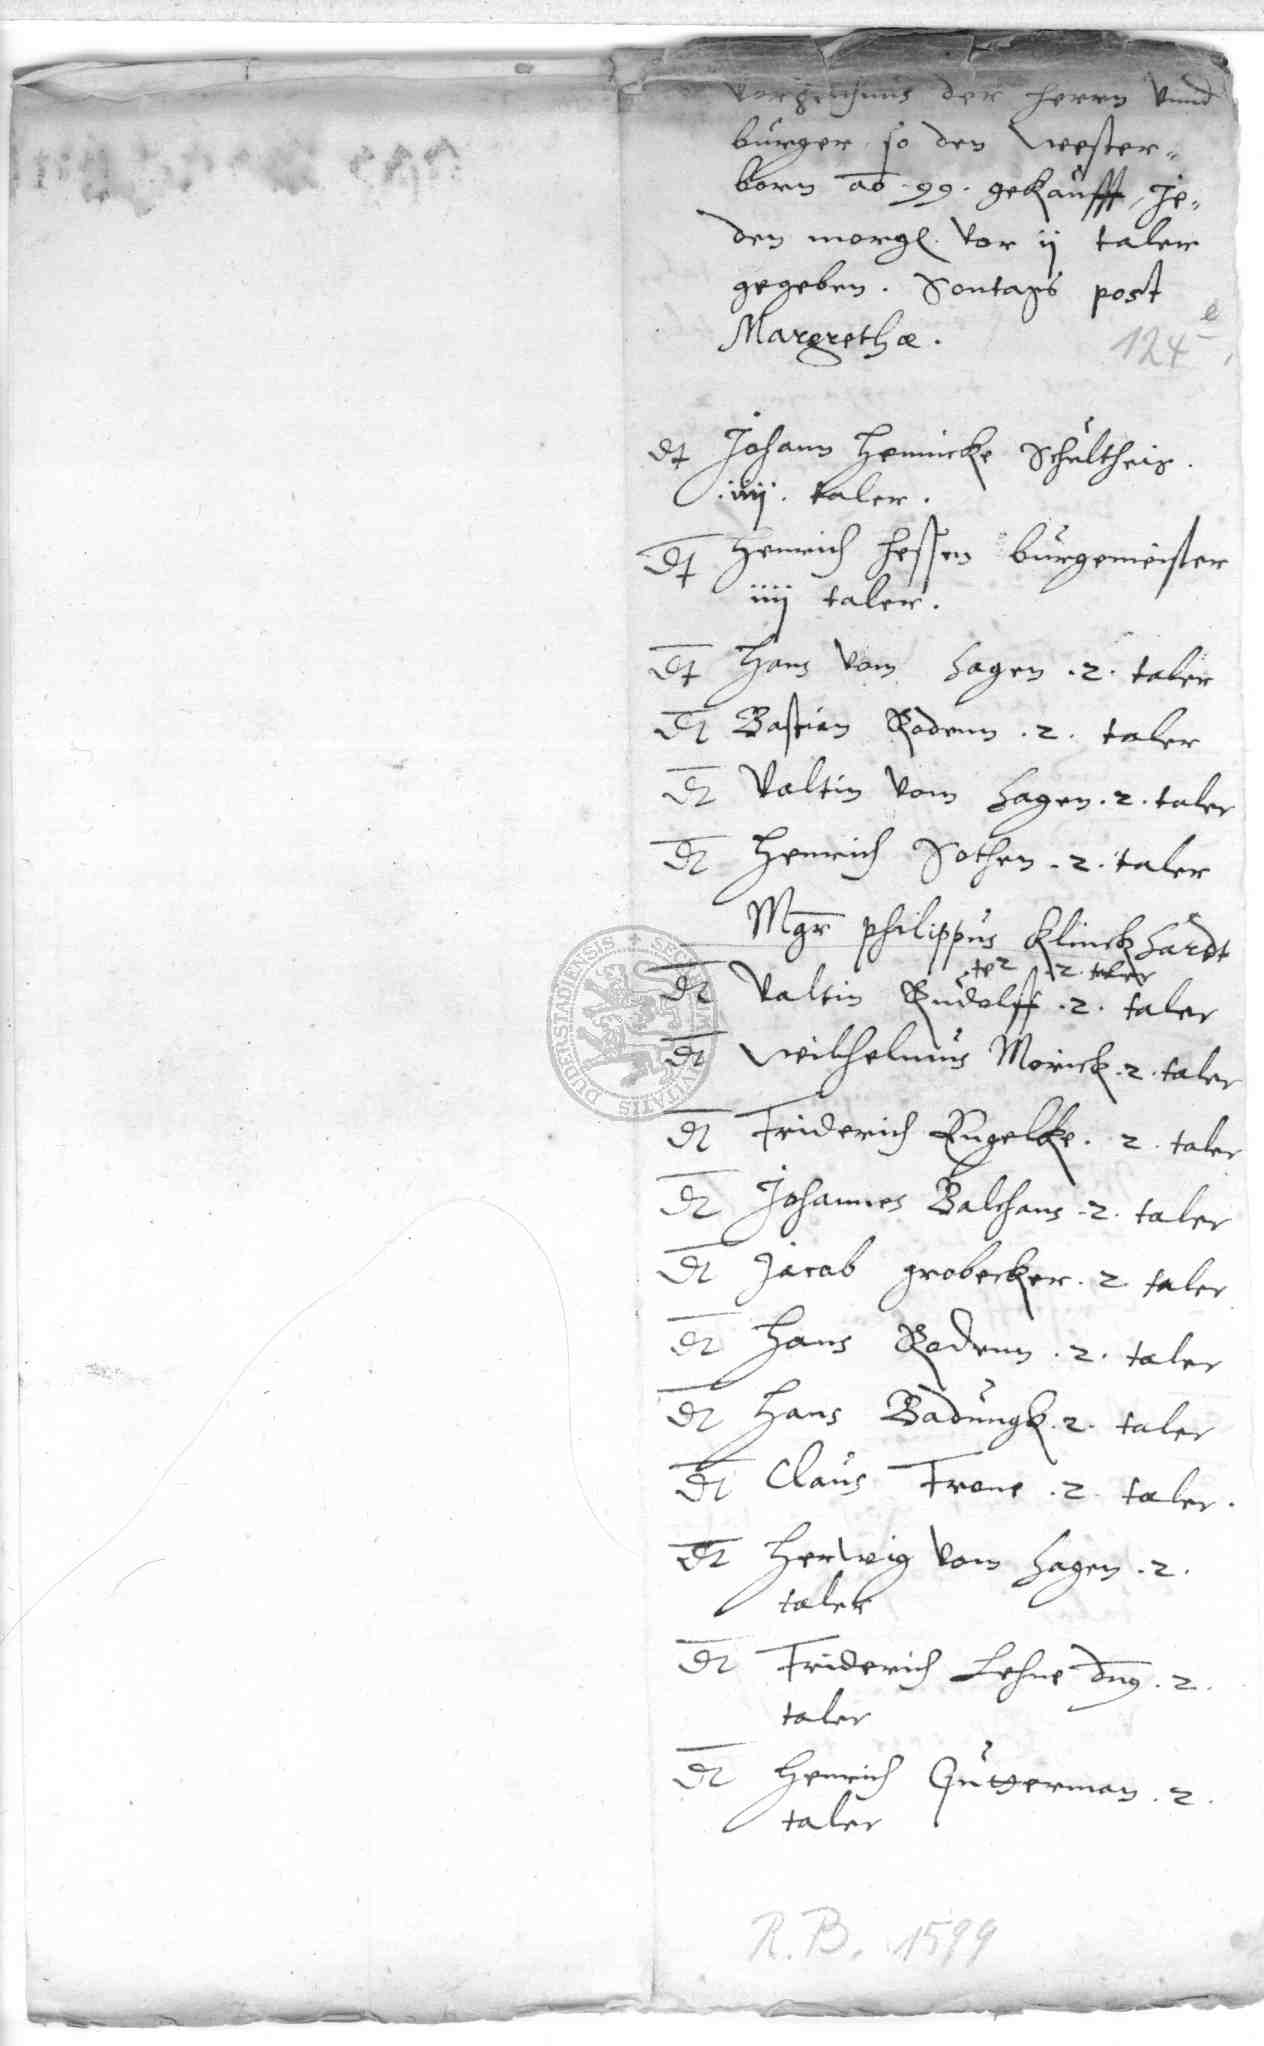 Vorzeichnus der herrn vnnd
bürger so den wester=
born ao .99. gekaufft, je=
den morg vor ij taler
gegeben. Sontags post
Margrethæ.
124 e
dt Johann Hennicke Schultheis.
.iiij. taler.
dt Henrich Hessen bürgemeister
iiij taler.
dt Hans vom Hagen .2. taler
dt Bastian Rodenn .2. taler
dt Valtin vom Hagen .2. taler
dt Henrich Sothen .2. taler
Mgr philippus Klinckhardt
.2. taler
dt Valtin Rudolff .2. taler
dt Wilhelmus Morick .2. taler
dt Friderich Engelke .2. taler
dt Johannes Balthans .2. taler
dt Jacob grobecker .2 taler
dt Hans Rodenn .2. taler
dt Hans Badungk .2. taler
dt Claus Trone .2. taler.
dt Herwig vom Hagen .2.
taler
dt Friderich Lehne .2.
taler
dt Henrich Gutterman .2.
taler
R. B. 1599
SECRETVM CIVITATIS DUDERSTADIENSIS